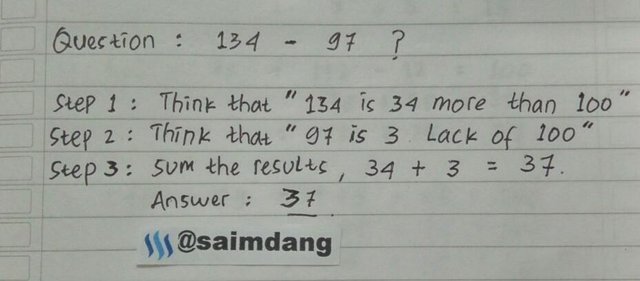 Question : 134 - 97 ?
Step 1 : Think that " 134 is 34 more than 100 "
Step 2 : Think that " 97 is 3 Lack of 100 "
Step 3 : sum the results, 34 + 3 = 37.
Answer : 37
@saimdang